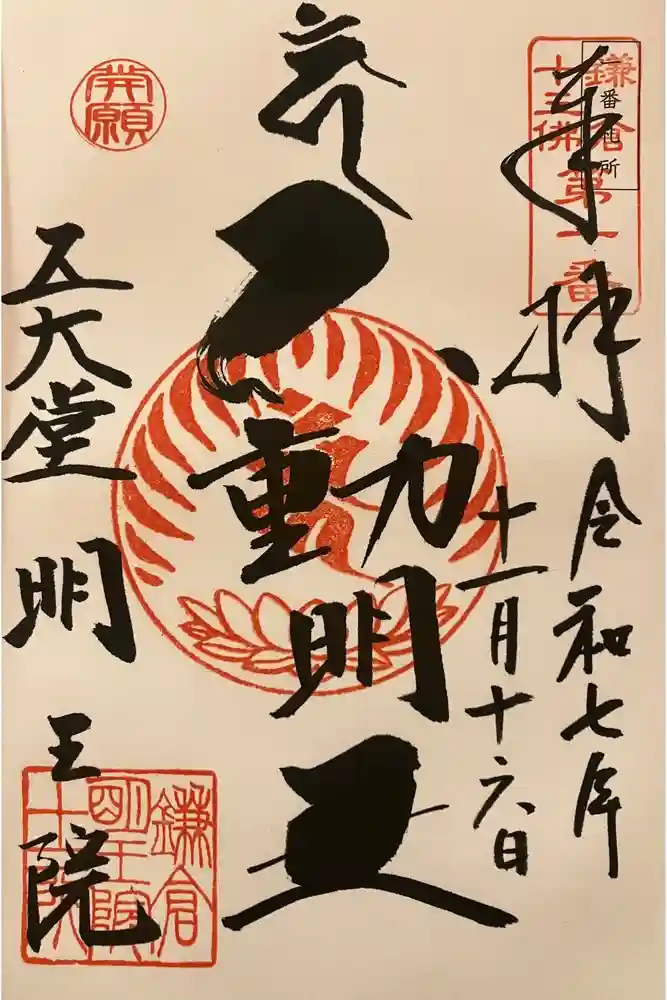 鎌倉
十三佛第一番
一番札所
奉拝
令和七年
十一月十六日
不動明王
開願
五大堂
明王院
鎌倉
明王院